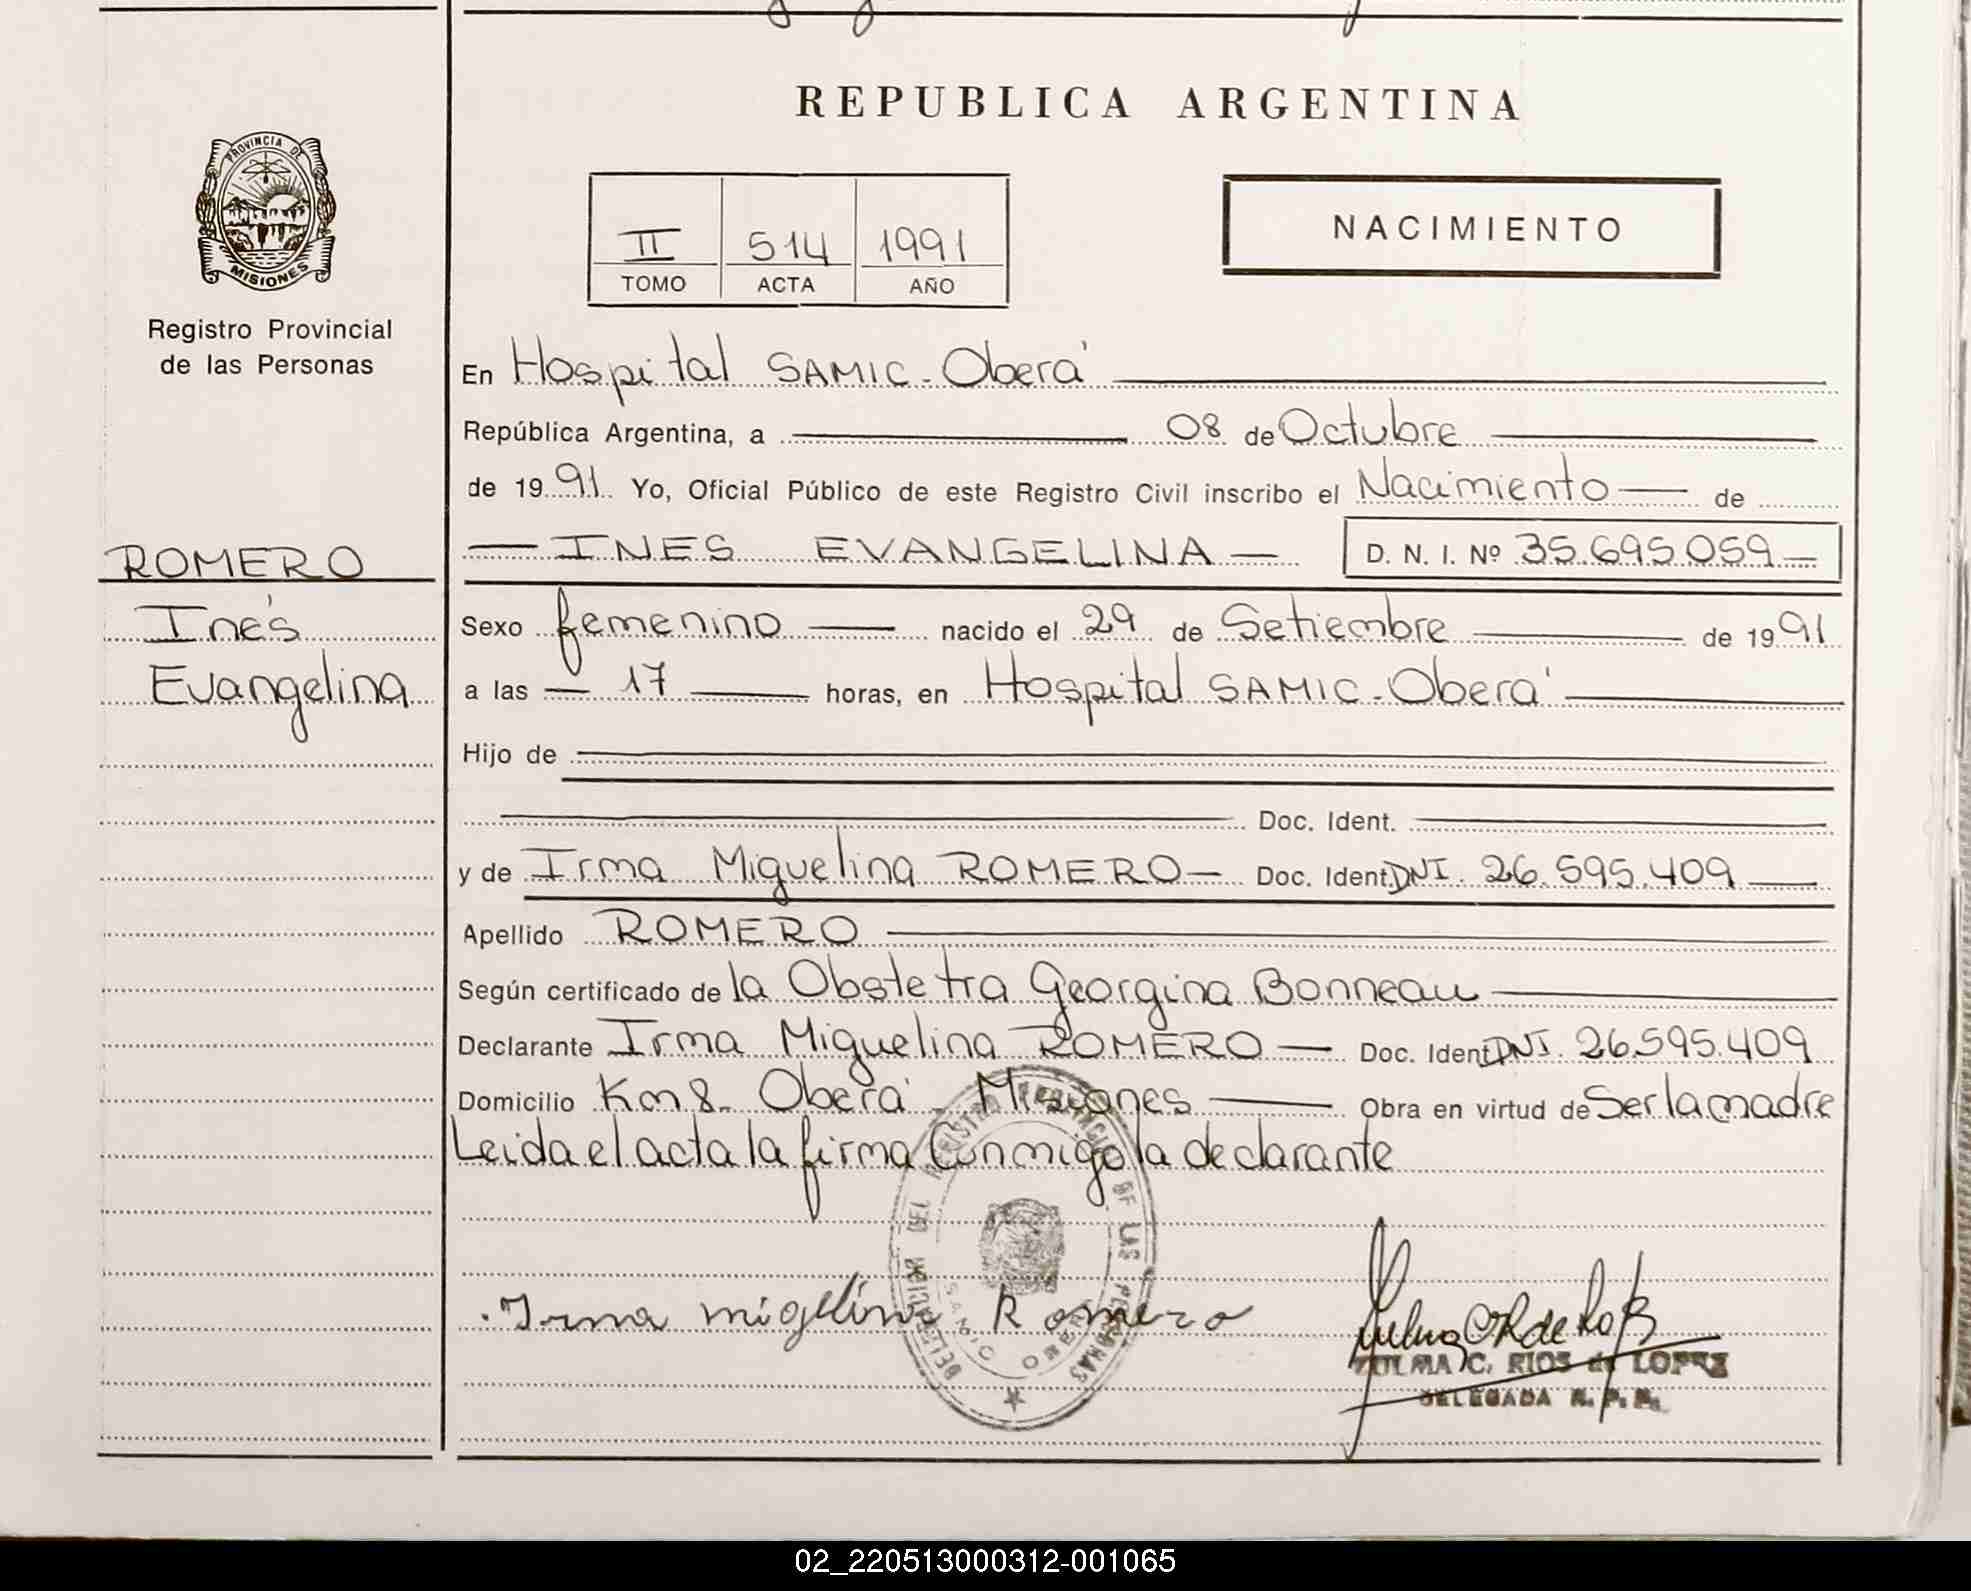 REPUBLICA ARGENTINA
PROVINCIA DE
MISIONES
Registro Provincial
de las Personas
II 514 1991
TOMO ACTA AÑO
NACIMIENTO
En Hospital SAMIC - Oberá
República Argentina, a 08 de Octubre
de 1991 Yo, Oficial Público de este Registro Civil inscribo el Nacimiento de
INES EVANGELINA D. N. I. Nº 35.695.059
ROMERO
Inés
Evangelina
Sexo femenino nacido el 29 de Setiembre de 1991
a las 17 horas, en Hospital SAMIC - Oberá
Hijo de
Doc. Ident.
y de Irma Miguelina ROMERO Doc. Ident DNI. 26.595.409
Apellido ROMERO
Según certificado de la Obstetra Georgina Bonneau
Declarante Irma Miguelina ROMERO Doc. Ident DNI. 26.595.409
Domicilio Km 8 - Oberá - Misiones Obra en virtud de Ser la madre
Leida el acta la firma Conmigo la declarante
DEL REGISTRO PROVINCIAL DE LAS PERSONAS
Irma migelina Romero
ZULMA C. RIOS de LOPEZ
DELEGADA R. P. P.
02_220513000312-001065